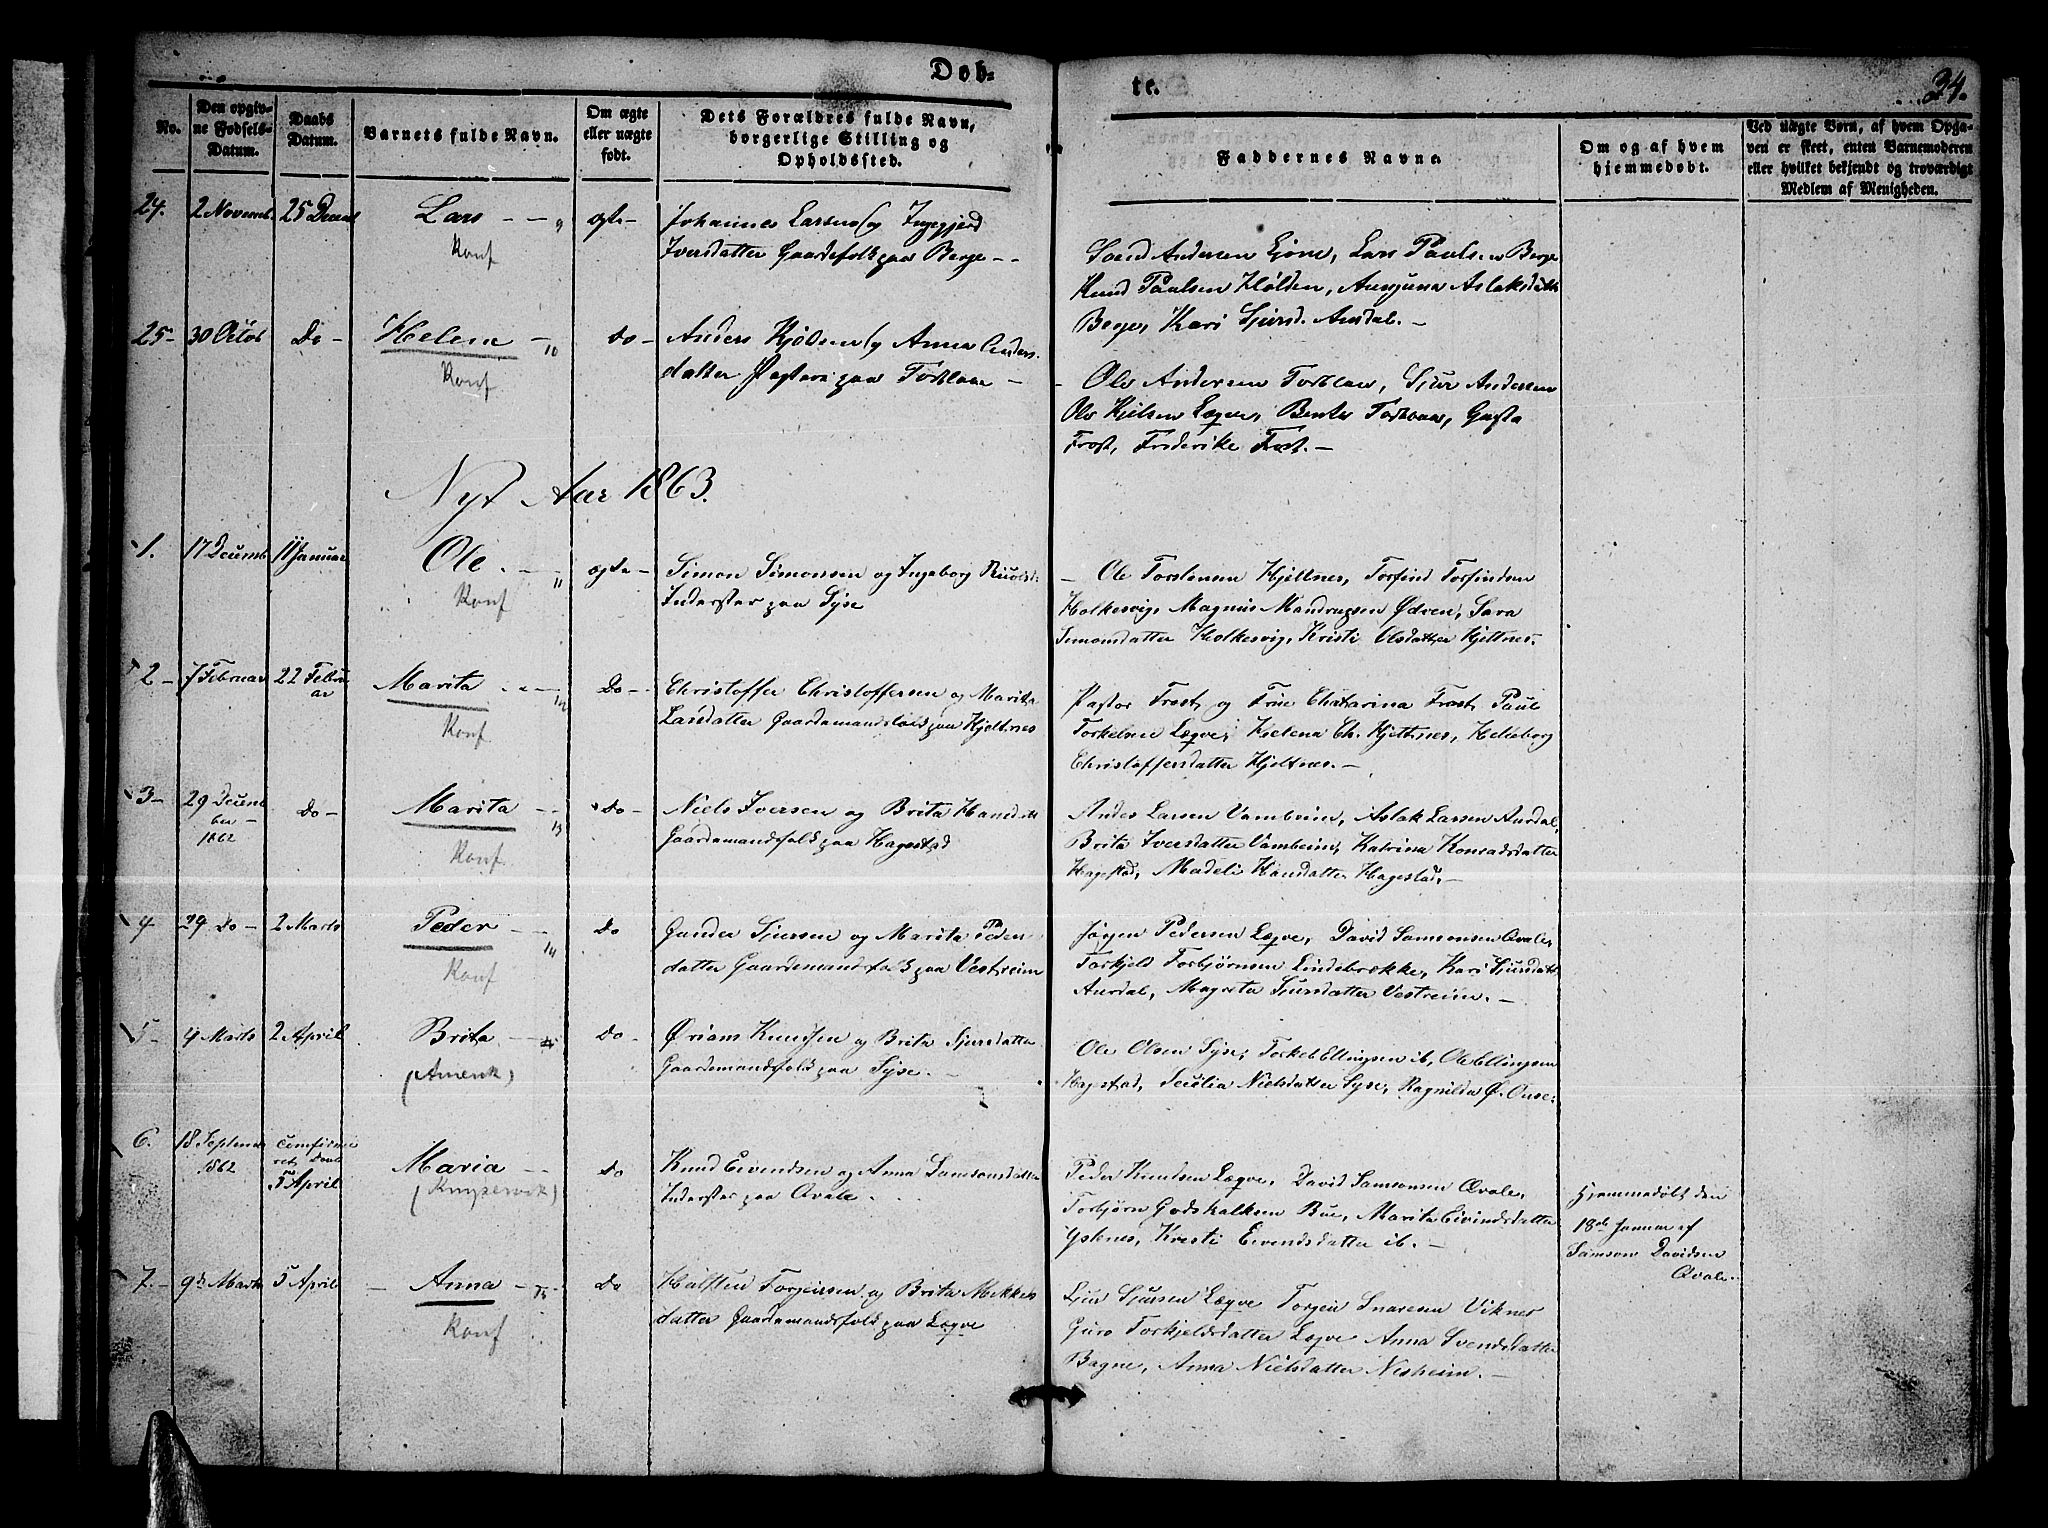 Døb-
te.
34.
No.
Den opgiv-
ne Fødsels-
Datum.
Daabs
Datum.
Barnets fulde Navn.
Om ægte
eller uægte
født.
Dets Forældres fulde Navn,
borgerlige Stilling og
Opholdssted.
Faddernes Navne.
Om og af hvem
hjemmedøbt.
Ved uægte Børn, af hvem Opga-
ven er skeet, enten Barnemoderen
eller hvilket bekjendt og troværdigt
Medlem af Menigheden.
24. 2 Novemb. 25 Decemb Lars - - 9 ægte -
Konf
Johannes Larsen og Ingegjerd
Iversdatter Gaardefolk paa Berge - -
Svend Andersen Lars Paulsen Berge
Knud Paulsen Aslaksdatter
Berge, Kari Sjursd. Aurdal. -
25 - 30 Octob Do - Helene - 10 Do -
Konf
Anders og Anna Anders-
datter paa
- Ole Andersen Sjur Andersen
Ole Lægve, Gusta
Frost, Friderike Frost. -
Nyt Aar 1863.
1. 17 Decemb 11 Januar Ole - - 11 ægte -
Konf
Simon Simonsen og Ingeborg
Inderster paa Syse
- Ole Torstensen Hjeltnes, Torfind Torfindsen
Holkesvig, Magnus Mandrupsen Ødven, Sara
Simonsdatter Holkesvig, Kristi Olsdatter Hjeltnes.
2 - 7 Februar 22 Febru
ar
Marita - - 12 Do -
Konf
Christoffer Christoffersen og Marita
Larsdatter Gaardemandsfolk paa Hjeltnes
Pastor Frost og Frue Chatarina Frost, Paul
Torkelsen Lægve, Helena Ch. Hjeltnes,
Christoffersdatter Hjeltnes. -
3 - 29 Decem
ber -
1862
Do - Marita - - 13 Do -
Konf
Niels Iversen og Brita
Gaardemandsfolk paa Hagestad
Andes Larsen Vambeim, Aslak Larsen Aurdal,
Brita Iversdatter Vambeim, Katrina Konradsdatter
Hagestad, Madeli Hansdatter Hagestad. -
4 29 Do - 2 Marts Peder - - 14 Do
Konf
Gunder Sjursen og Marita Peders
datter Gaardemandsfolk paa Vestreim
Jørgen Pedersen Lægve, David Samsonsen Qvale,
Torkjeld Torbjørnsen Lindebrække, Kari Sjursdatt.
Aurdal, Magreta Sjursdatter Vestreim. -
5 - 4 Marts 2 April Brita - - Do -
(Amerik)
Ørians Knutsen og Brita Sjursdatter
Gaardemandsfolk paa Syse. -
Ole Olsen Syse, Torkel Ellingsen ib, Ole Ellingsen
Hagestad, Secilia Nielsdatter Syse, Ragnilda Ø.
6. 18 Septemb
1862
confirme
ret Daab
5 April
Maria - - Do
Knud Eivendsen og Anna Samsonsdatter
Inderster paa Qvale.
Peder Knudsen Lægve, David Samsonsen Qvale,
Torbjørn Godskalksen Bue, Marita Eivindsdatter
Kristi Eivendsdatter ib. -
Hjemmedøbt den
18de Januar af
Samson Davidsen
Qvale.
7. - 9de Marts 5 April - Anna - 15 Do
Konf
Halsten Torgeirsen og Brita Mikkels
datter Gaardemandsfolk paa Lægve
Sjur Sjursen Lægve Torgeir Viknes
Guro Torkjeldsdatter Lægve Anna Svendsdatter
Bagne, Anna Nielsdatter Nesheim. -